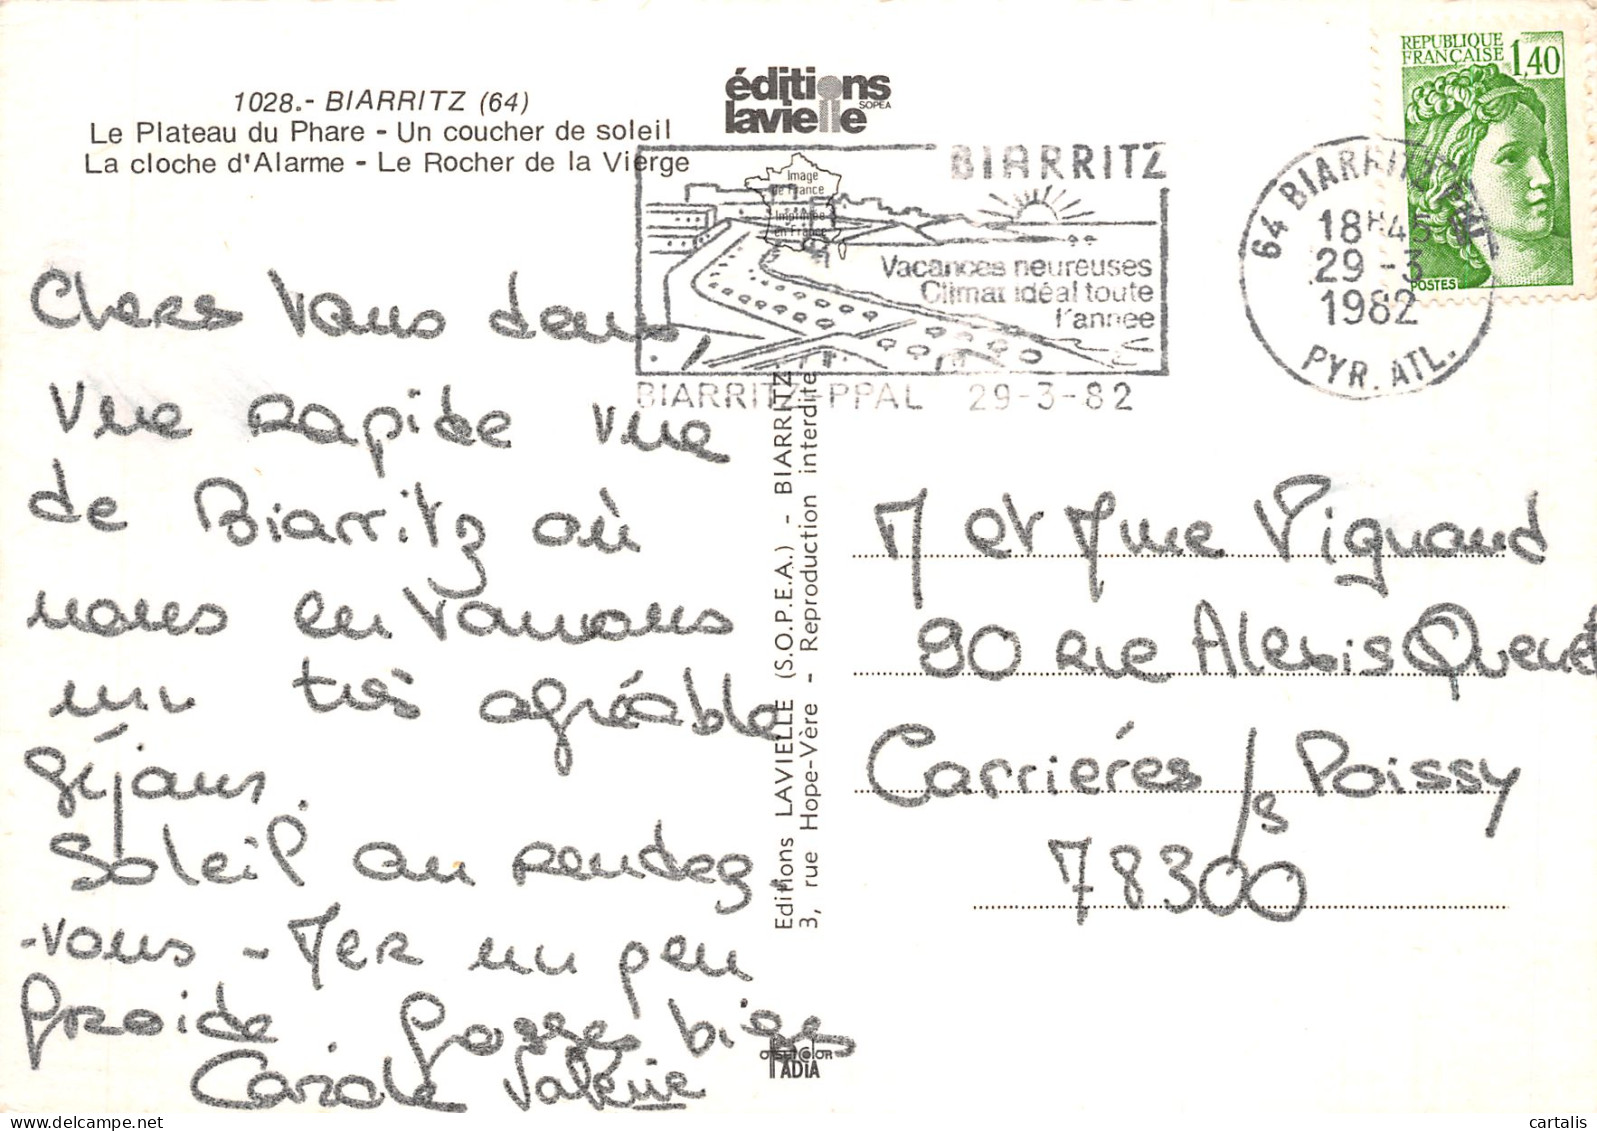 1028.- BIARRITZ (64)
Le Plateau du Phare - Un coucher de soleil
La cloche d'Alarme - Le Rocher de la Vierge
éditions
lavielle
SOPEA
Image
de France
Imprimée
en France
BIARRITZ
Vacances heureuses
Climat idéal toute
l'année
BIARRITZ-PPAL 29-3-82
64 BIARRITZ
18H45
29-3
1982
PYR. ATL.
REPUBLIQUE
FRANÇAISE
1,40
POSTES
Chers Vous deux,
Vue rapide vue
de Biarritz où
nous en
un très agréable
séjour.
Soleil au rendez
-vous - Mer un peu
froide. Grosses bises
Carole Valérie
Editions LAVIELLE (S.O.P.E.A.) - BIARRITZ
3, rue Hope-Vère - Reproduction interdite
OFFSET COLOR
PADIA
M et Mme Vignaud
90 rue Alexis Quenet
Carriéres /s Poissy
78300
cartalis